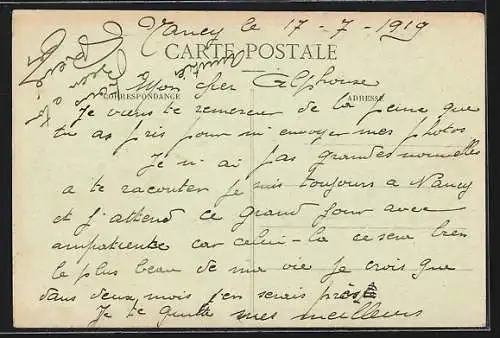 Nancy le 17-7-1919
CARTE POSTALE
Mon cher Alphonse
CORRESPONDANCE
ADRESSE
Je viens te remercier de la peine que
tu as pris pour m'envoyer mes photos
Je n'ai pas grandes nouvelles
a te raconter je suis toujours a Nancy
et j'attend ce grand jour avec
ampatience car celui-la ce sera bien
le plus beau de ma vie je crois que
dans deux mois j'en serais près
Je te quitte mes meilleurs
amitiés